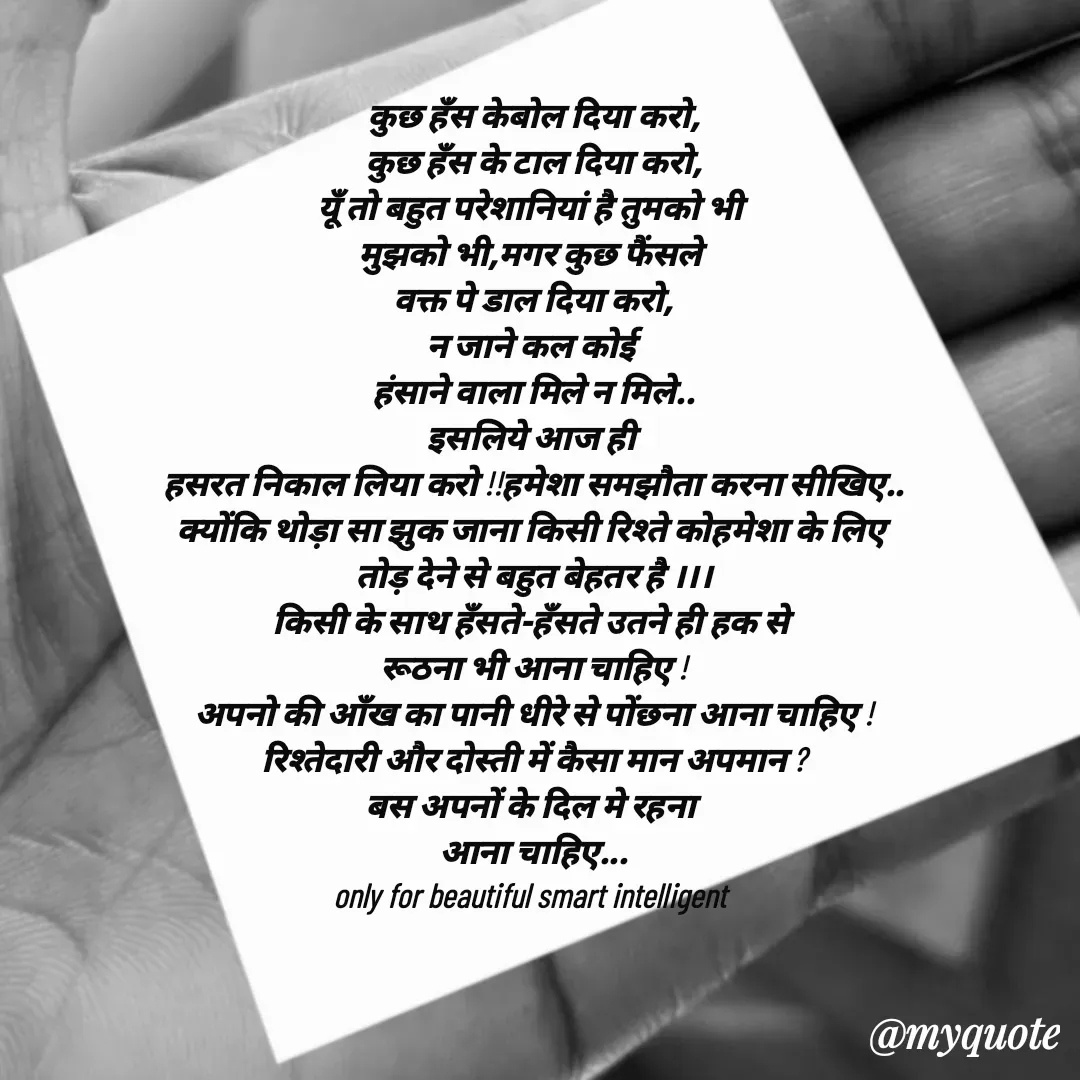 कुछ हँस केबोल दिया करो,
कुछ हँस के टाल दिया करो,
यूँ तो बहुत परेशानियां है तुमको भी
मुझको भी,मगर कुछ फैंसले
वक्त पे डाल दिया करो,
न जाने कल कोई
हंसाने वाला मिले न मिले..
इसलिये आज ही
हसरत निकाल लिया करो !!हमेशा समझौता करना सीखिए..
क्योंकि थोड़ा सा झुक जाना किसी रिश्ते कोहमेशा के लिए
तोड़ देने से बहुत बेहतर है ।।।
किसी के साथ हँसते-हँसते उतने ही हक से
रूठना भी आना चाहिए !
अपनो की आँख का पानी धीरे से पोंछना आना चाहिए !
रिश्तेदारी और दोस्ती में कैसा मान अपमान ?
बस अपनों के दिल मे रहना
आना चाहिए...
only for beautiful smart intelligent
@myquote